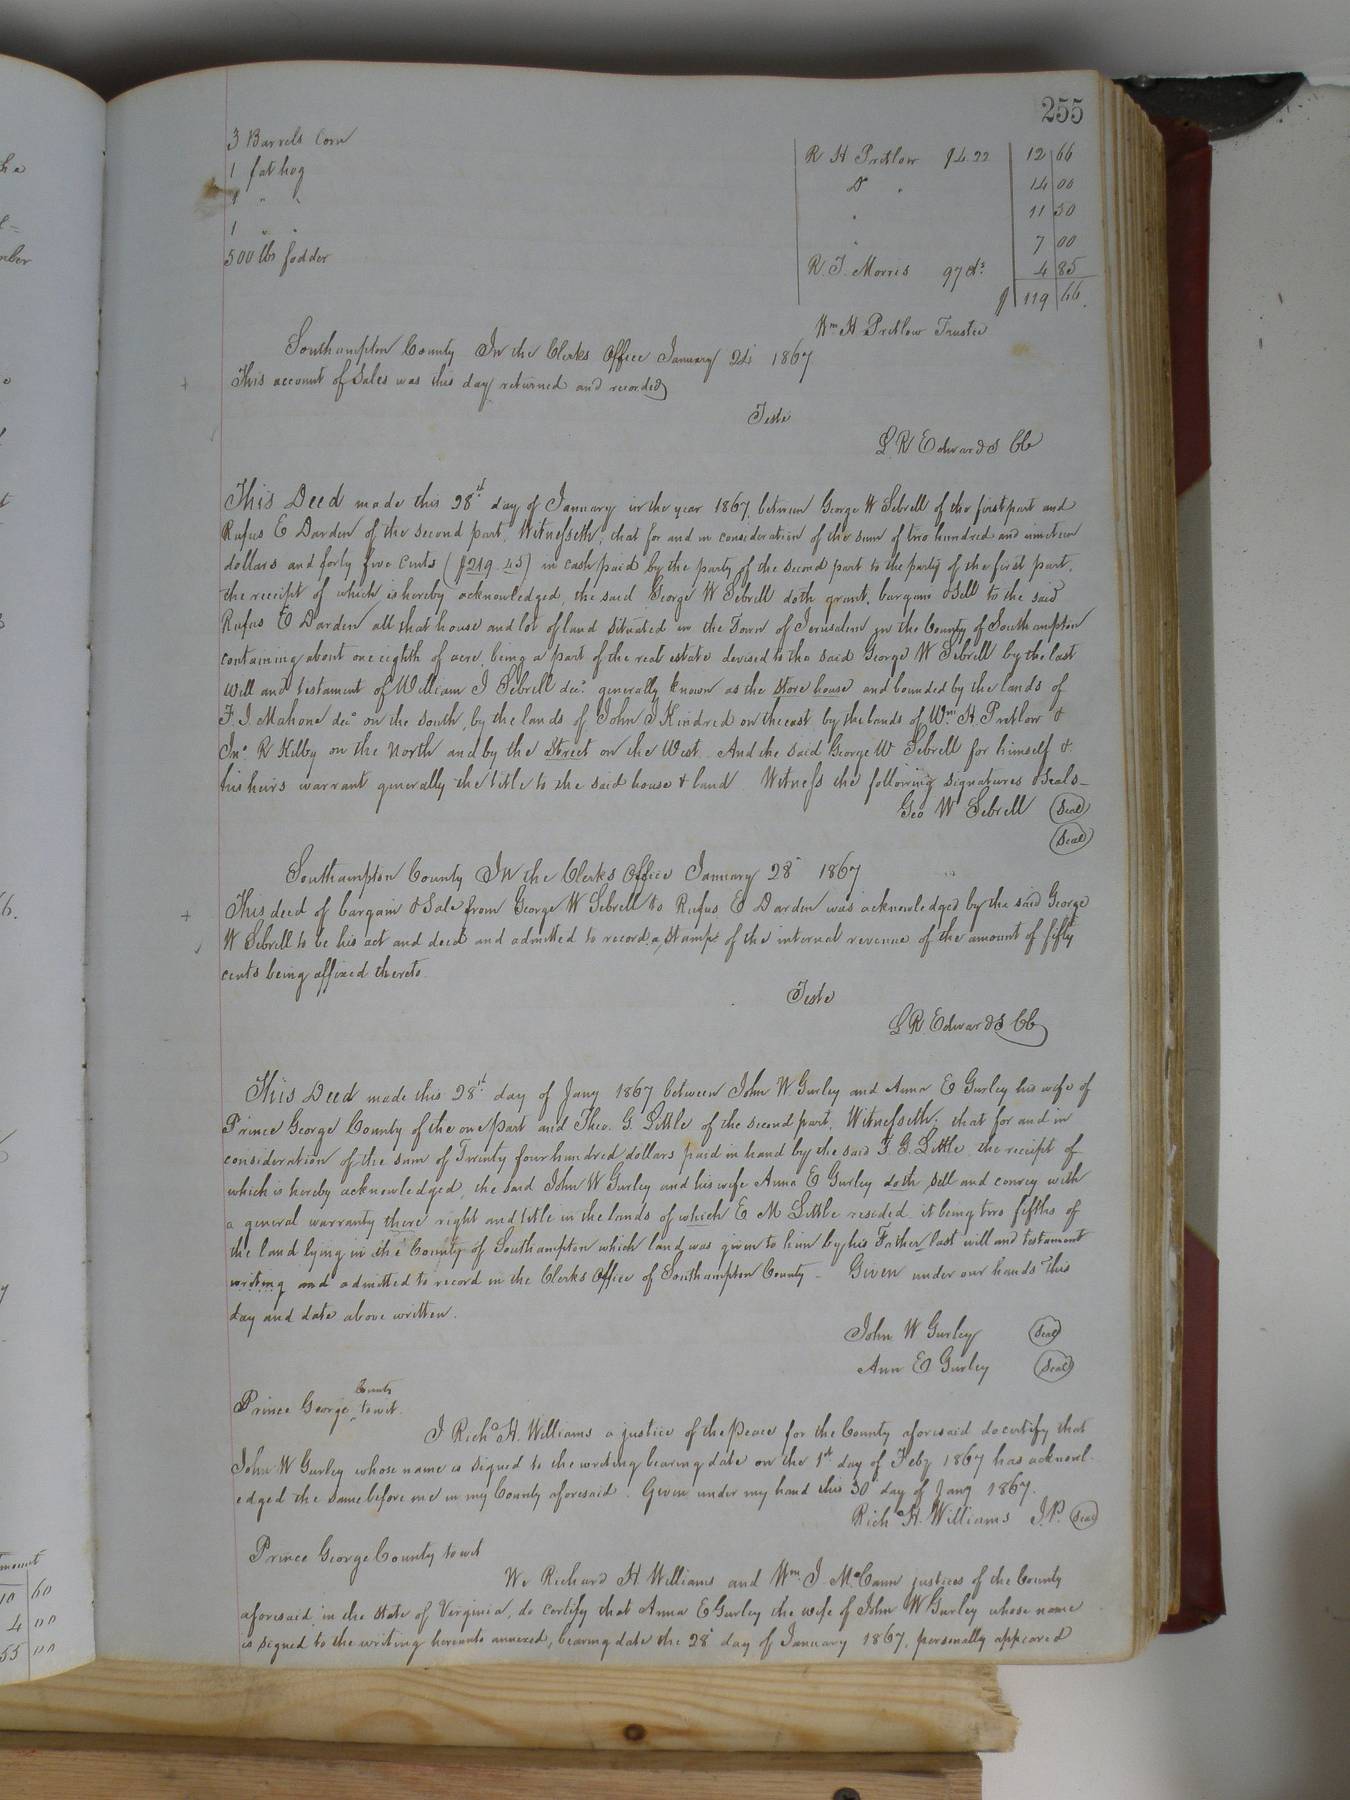 255
3 Barrels Corn R H Pretlow $4.22 12 66
1 fat hog Do " 14 00
1 " " " 11 50
1 " " " 7 00
500 lbs fodder R. T. Morris 97 cts 4 85
$ 119 66.
Wm H Pretlow Trustee
Southampton County In the Clerks Office January 24 1867
This account of Sales was this day returned and recorded
Teste
L R Edwards CC
This Deed made this 28th day of January in the year 1867 between George W Sebrell of the first part and
Rufus E Darden of the second part, Witnesseth, that for and in consideration of the sum of two hundred and nineteen
dollars and forty five Cents ($219.45) in cash paid by the party of the second part to the party of the first part,
the receipt of which is hereby acknowledged, the said George W Sebrell doth grant, bargain & Sell to the said
Rufus E Darden all that house and lot of land situated in the Town of Jerusalem in the County of Southampton
containing about one eighth of acre, being a part of the real estate devised to the said George W Sebrell by the last
will and testament of William J Sebrell decd. generally known as the store house and bounded by the lands of
F. J. Mahone decd on the South, by the lands of John J Kindred on the east by the lands of Wm H. Pretlow &
Jno R Kilby on the North and by the Street on the West. And the said George W Sebrell for himself &
his heirs warrant generally the title to the said house & land Witness the following signatures & Seals
Geo W Sebrell (Seal)
(Seal)
Southampton County In the Clerks Office January 28 1867
This deed of bargain & Sale from George W Sebrell to Rufus E Darden was acknowledged by the said George
W Sebrell to be his act and deed and admitted to record, a stamp of the internal revenue of the amount of fifty
cents being affixed thereto.
Teste
L R Edwards CC
This Deed made this 28th day of Jany 1867 between John W. Gurley and Anna E Gurley his wife of
Prince George County of the one part and Theo. G. Little of the second part, Witnesseth, that for and in
consideration of the sum of Twenty four hundred dollars paid in hand by the said T. G. Little, the receipt of
which is hereby acknowledged, the said John W Gurley and his wife Anna E Gurley doth sell and convey with
a general warranty there right and title in the lands of which E M Little resided it being two fifths of
the land lying in the County of Southampton which land was given to him by his Father last will and testament
writing and admitted to record in the Clerks Office of Southampton County – Given under our hands this
day and date above written.
John W Gurley (Seal)
Ann E Gurley (Seal)
Prince George County to wit.
I Richd H. Williams a justice of the peace for the County aforesaid do certify that
John W Gurley whose name is signed to the writing bearing date on the 1st day of Feby 1867 has acknowl-
edged the same before me in my County aforesaid. Given under my hand this 30 day of Jany 1867.
Richd H. Williams J.P. (Seal)
Prince George County to wit
We Richard H Williams and Wm J McCann justices of the County
aforesaid in the State of Virginia, do certify that Anna E Gurley the wife of John W Gurley whose name
is signed to the writing hereunto annexed, bearing date the 28 day of January 1867, personally appeared